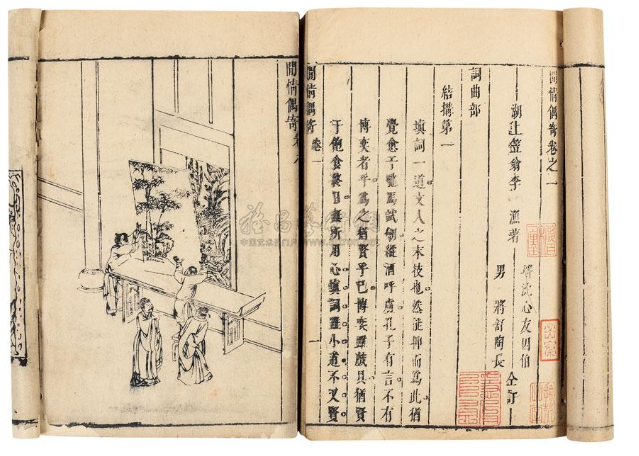 閒情偶寄卷之一
湖上笠翁李漁著
婿沈心友因伯
男將舒陶長
仝訂
詞曲部
結搆第一
填詞一道文人之末技也然能抑而為此猶
覺愈于馳馬試劍縱酒呼盧孔子有言不有
博奕者乎為之猶賢乎已博奕雖戲具猶賢
于飽食終日無所用心填詞雖小道不又賢
閒情偶寄 卷一
閒情偶寄卷